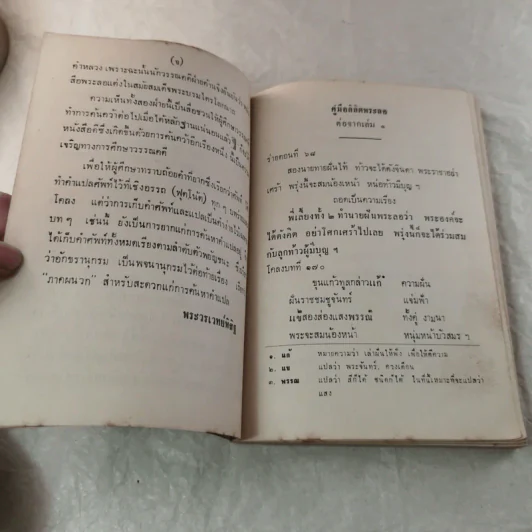 (ข)
คำหลวง เพราะฉะนั้นนักวรรณคดีฝ่ายค้านจึงยืนยันว่า
ลือพระลอแต่งในสมัยสมเด็จพระบรมไตรโลกนาถ
ความเห็นทั้งสองฝ่ายนี้เป็นสื่อชวนให้ผู้ศึกษา
ทำการค้นคว้าต่อไปเมื่อได้หลักฐานแน่นอนแล้ว
หนังสือดีซึ่งเกิดขึ้นด้วยการค้นคว้าอีกเรื่องหนึ่ง
เจริญทางการศึกษาวรรณคดี
เพื่อให้ผู้ศึกษาทราบถ้อยคำที่ยากซึ่งเรียกว่าศัพท์
ทำคำแปลศัพท์ไว้ที่เชิงอรรถ (ฟุตโน้ต) ทุก ๆ
โคลง แต่ว่าการเก็บคำศัพท์และแปลเป็นคำอ่าน
บท ๆ เช่นนี้ ยังเป็นการยากแก่การค้นหาคำแปลอยู่
ได้เก็บคำศัพท์ทั้งหมดเรียงตามลำดับตัวพยัญชนะ ซึ่ง
ว่าอักขรานุกรม เป็นพจนานุกรมไว้ต่อท้ายเรื่อง เรียก
"ภาคผนวก" สำหรับสะดวกแก่การค้นหาคำแปล
พระวรเวทย์พิสิฐ
คู่มือลิลิตพระลอ
ต่อจากเล่ม ๑
ร่ายตอนที่ ๖๘
สองนายทายฝันไท้ ท้าวจะได้ดังจินดา พระราชาอย่า
เศร้า พรุ่งนี้จะสมน้องเหน้า หน่อท้าวมีบุญ ฯ
ถอดเป็นความเรียง
พี่เลี้ยงทั้ง ๒ ทำนายฝันพระลอว่า พระองค์จะ
ได้ดังคิด อย่าโศกเศร้าไปเลย พรุ่งนี้ก็จะได้ร่วมสม
กับลูกท้าวผู้มีบุญ ฯ
โคลงบทที่ ๑๗๐
ขุนแก้วทูลกล่าวแก้๑ ความฝัน
ฝันราชชมชูจันทร์ แจ่มฟ้า
แข๒สองส่องแสงพรรณ๓ ทั้งคู่ งามนา
พระจะสมน้องหน้า หนุ่มหน้าบัวสมร ฯ
๑. แก้ หมายความว่า เล่าฝันให้ฟัง เพื่อให้ตีความ
๒. แข แปลว่า พระจันทร์, ดวงเดือน
๓. พรรณ แปลว่า สีก็ได้ ชนิดก็ได้ ในที่นี้เหมาะที่จะแปลว่า
แสง